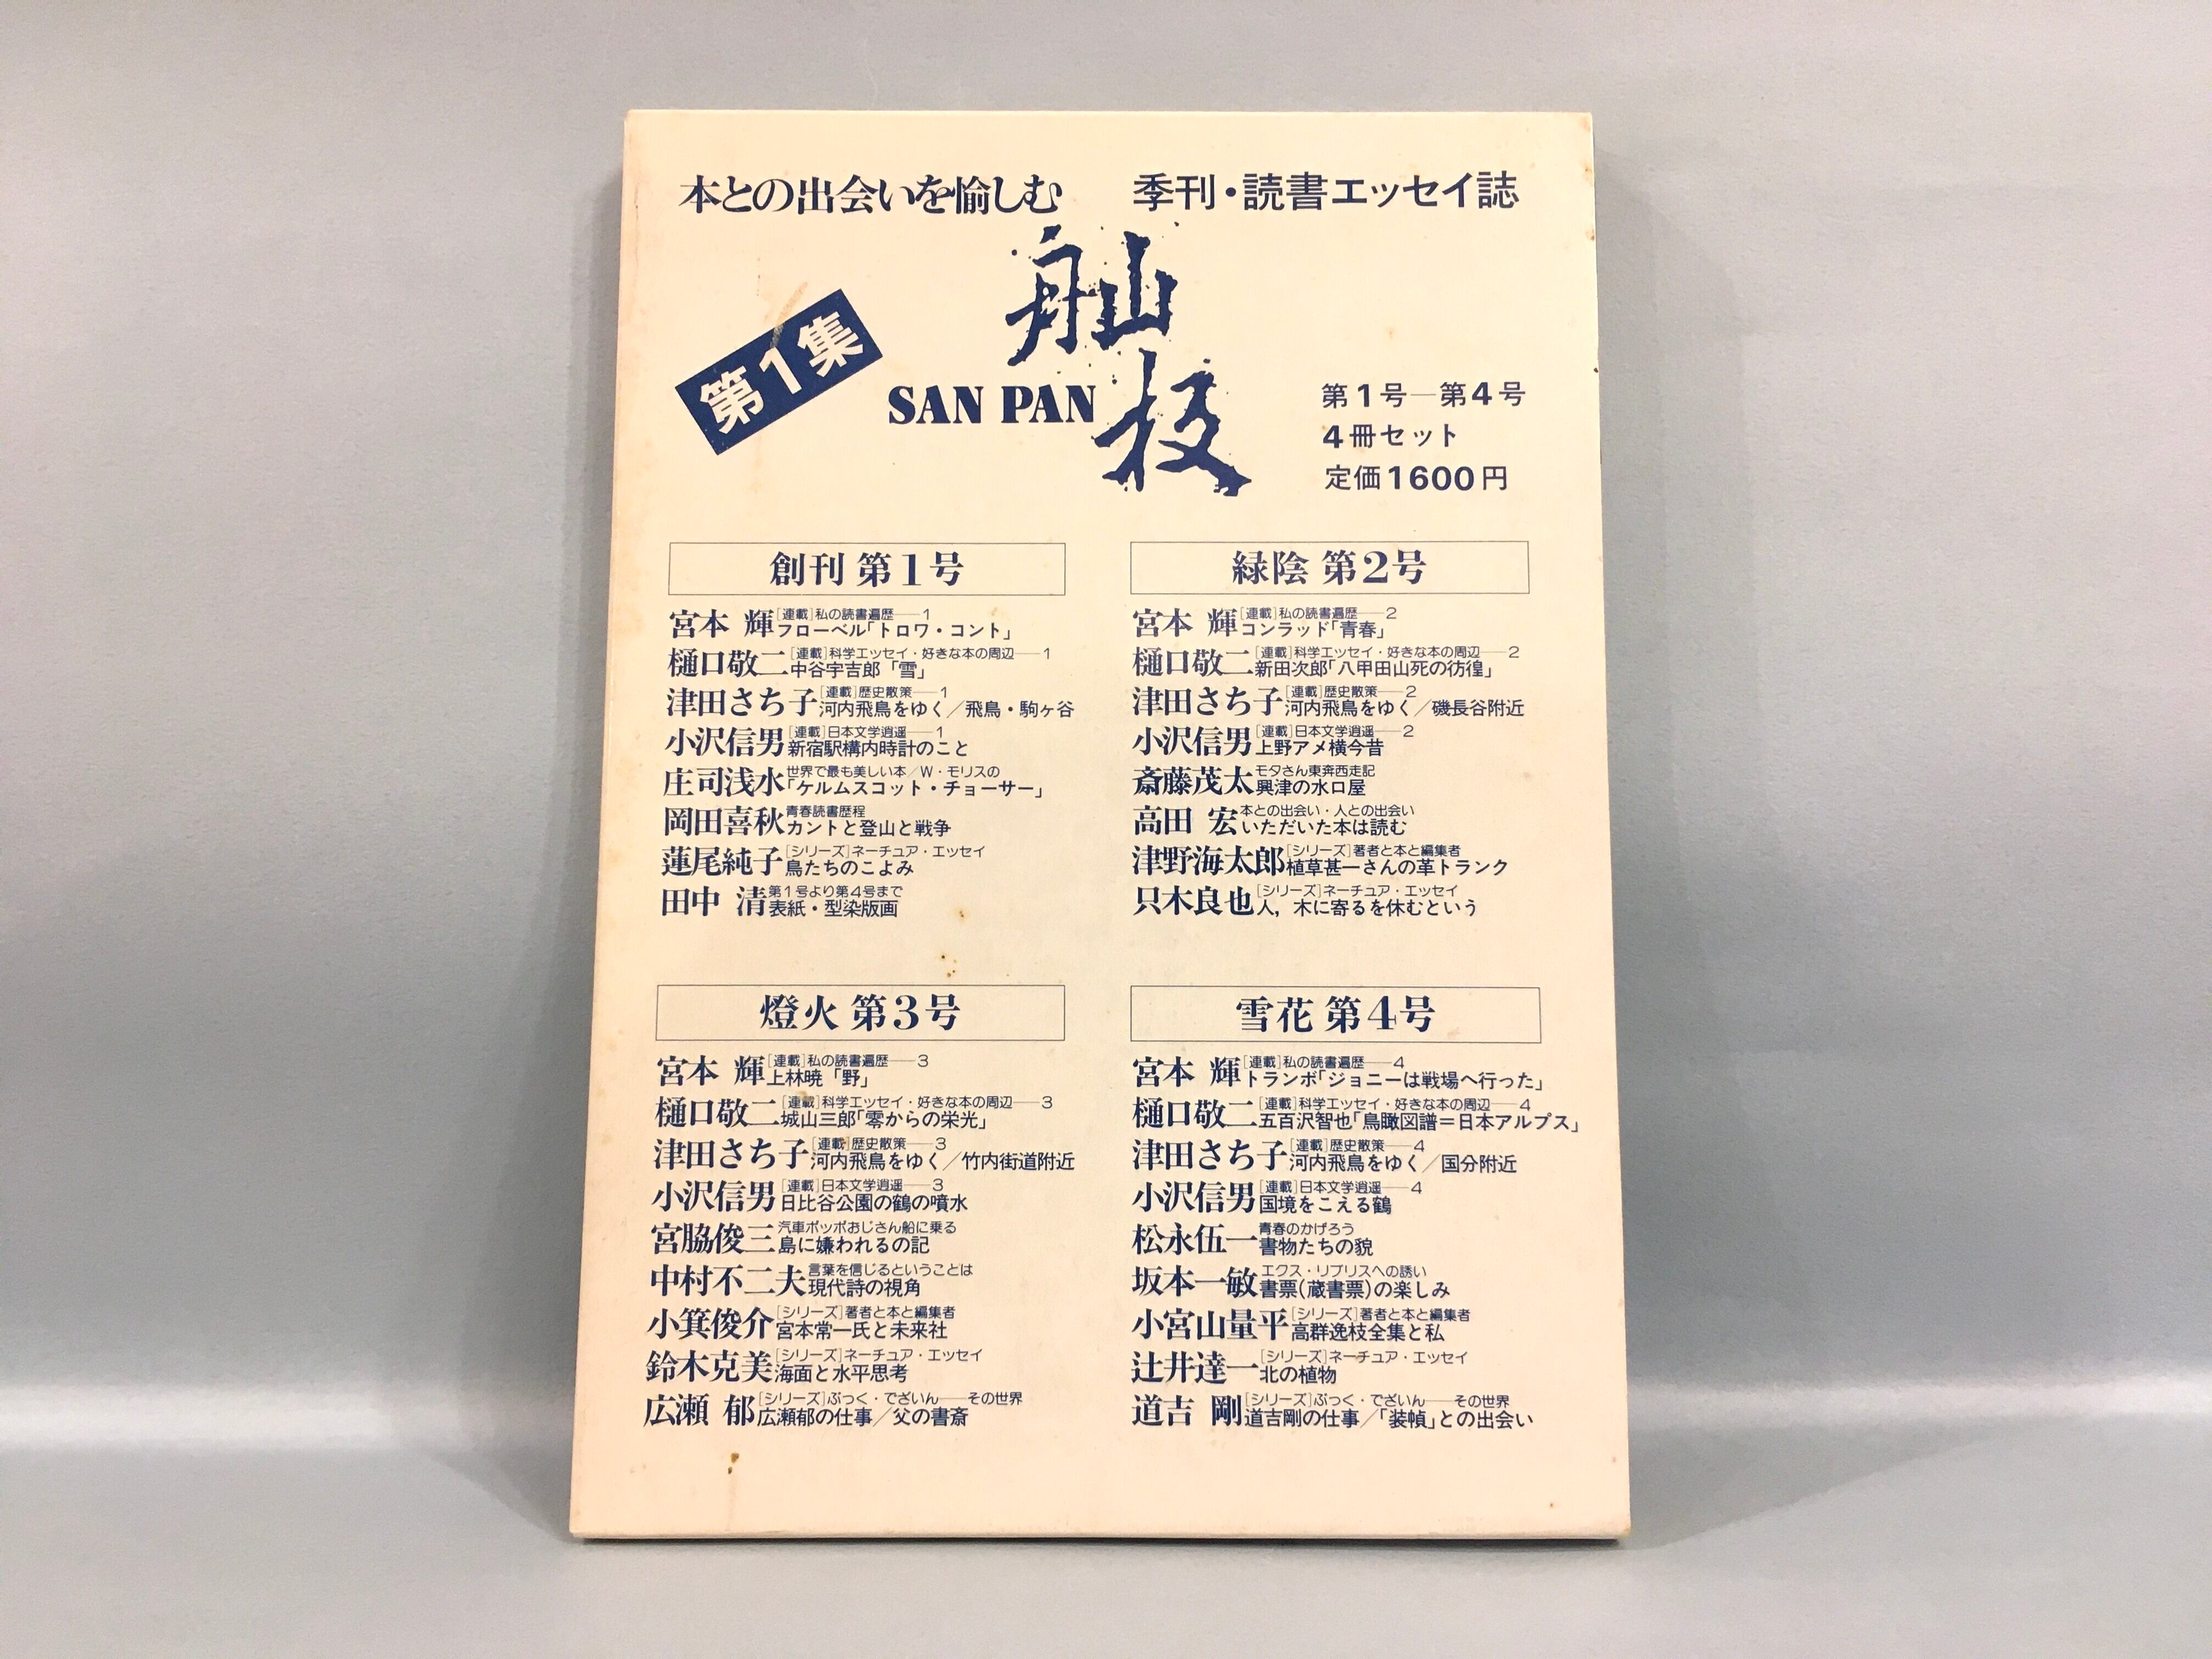 本との出会いを愉しむ　季刊・読書エッセイ誌
舢板
SAN PAN
第1集
第1号―第4号
4冊セット
定価1600円
創刊 第1号
宮本 輝 [連載]私の読書遍歴――1
フローベル「トロワ・コント」
樋口敬二 [連載]科学エッセイ・好きな本の周辺――1
中谷宇吉郎「雪」
津田さち子 [連載]歴史散策――1
河内飛鳥をゆく／飛鳥・駒ヶ谷
小沢信男 [連載]日本文学逍遥――1
新宿駅構内時計のこと
庄司浅水 世界で最も美しい本／W・モリスの
「ケルムスコット・チョーサー」
岡田喜秋 青春読書歴程
カントと登山と戦争
蓮尾純子 [シリーズ]ネーチュア・エッセイ
鳥たちのこよみ
田中 清 第1号より第4号まで
表紙・型染版画
緑陰 第2号
宮本 輝 [連載]私の読書遍歴――2
コンラッド「青春」
樋口敬二 [連載]科学エッセイ・好きな本の周辺――2
新田次郎「八甲田山死の彷徨」
津田さち子 [連載]歴史散策――2
河内飛鳥をゆく／磯長谷附近
小沢信男 [連載]日本文学逍遥――2
上野アメ横今昔
斎藤茂太 モタさん東奔西走記
興津の水口屋
高田 宏 本との出会い・人との出会い
いただいた本は読む
津野海太郎 [シリーズ]著者と本と編集者
植草甚一さんの革トランク
只木良也 [シリーズ]ネーチュア・エッセイ
人，木に寄るを休むという
燈火 第3号
宮本 輝 [連載]私の読書遍歴――3
上林暁「野」
樋口敬二 [連載]科学エッセイ・好きな本の周辺――3
城山三郎「零からの栄光」
津田さち子 [連載]歴史散策――3
河内飛鳥をゆく／竹内街道附近
小沢信男 [連載]日本文学逍遥――3
日比谷公園の鶴の噴水
宮脇俊三 汽車ポッポおじさん船に乗る
島に嫌われるの記
中村不二夫 言葉を信じるということは
現代詩の視角
小箕俊介 [シリーズ]著者と本と編集者
宮本常一氏と未来社
鈴木克美 [シリーズ]ネーチュア・エッセイ
海面と水平思考
広瀬 郁 [シリーズ]ぶっく・でざいん――その世界
広瀬郁の仕事／父の書斎
雪花 第4号
宮本 輝 [連載]私の読書遍歴――4
トランボ「ジョニーは戦場へ行った」
樋口敬二 [連載]科学エッセイ・好きな本の周辺――4
五百沢智也「鳥瞰図譜＝日本アルプス」
津田さち子 [連載]歴史散策――4
河内飛鳥をゆく／国分附近
小沢信男 [連載]日本文学逍遥――4
国境をこえる鶴
松永伍一 青春のかげろう
書物たちの貌
坂本一敏 エクス・リブリスへの誘い
書票（蔵書票）の楽しみ
小宮山量平 [シリーズ]著者と本と編集者
高群逸枝全集と私
辻井達一 [シリーズ]ネーチュア・エッセイ
北の植物
道吉 剛 [シリーズ]ぶっく・でざいん――その世界
道吉剛の仕事／「装幀」との出会い